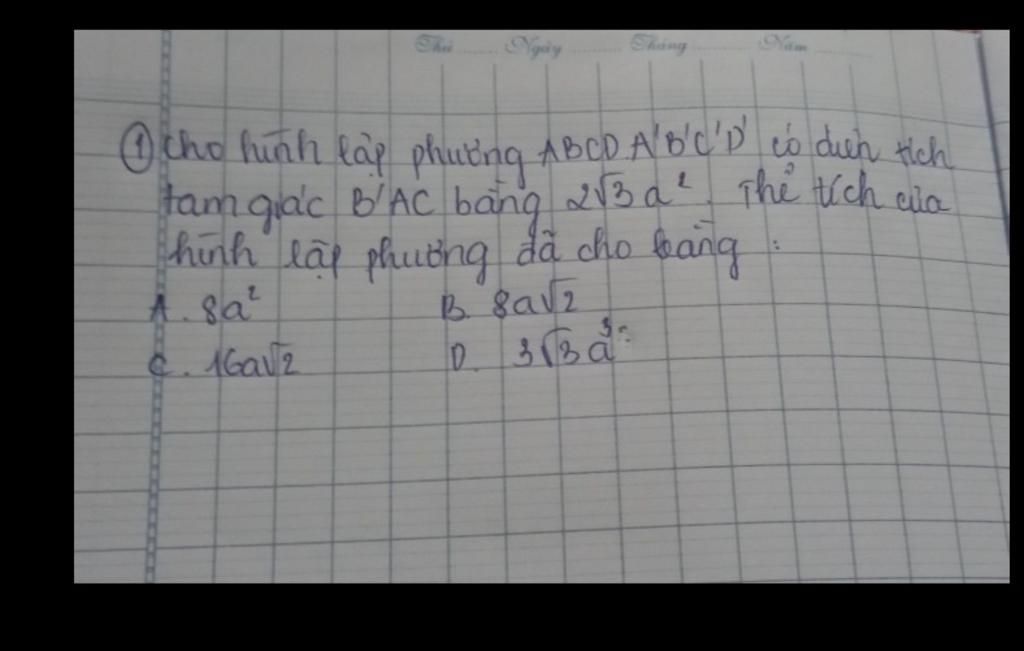 Thứ Ngày Tháng Năm
① Cho hình lập phương ABCD.A'B'C'D' có diện tích
tam giác B'AC bằng 2√3a². Thể tích của
hình lập phương đã cho bằng :
A. 8a² B. 8a√2
C. 16a√2 D. 3√3a³